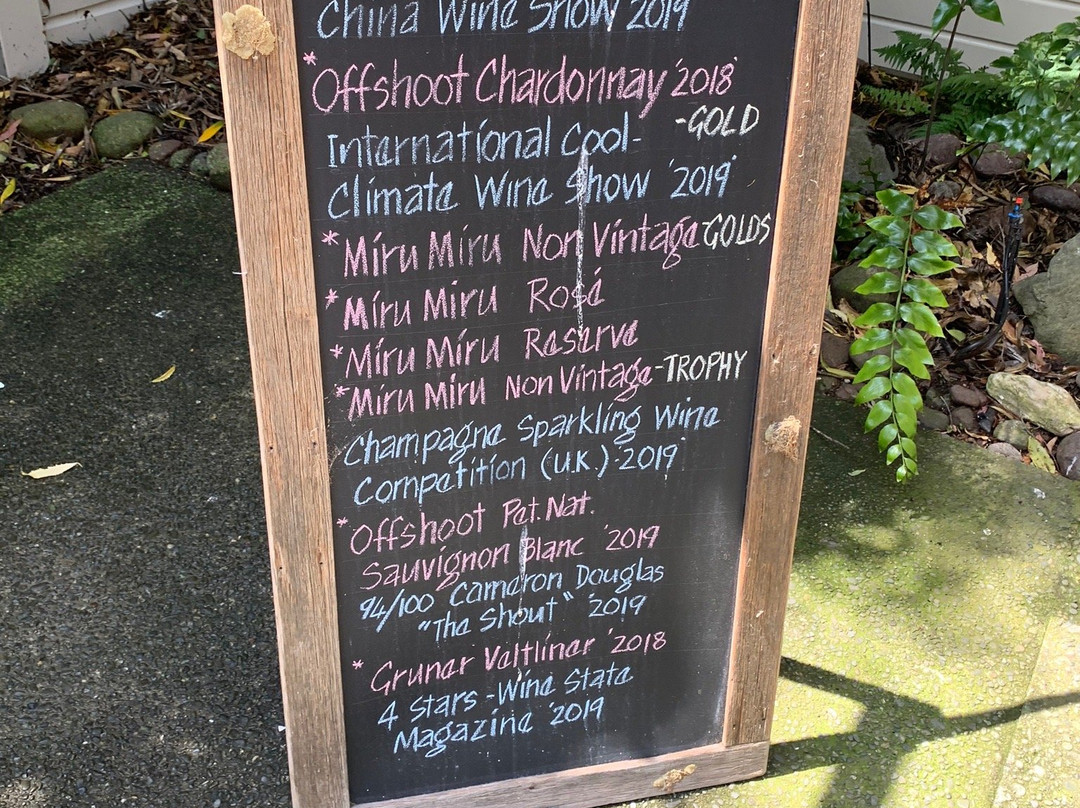 China Wine Show 2019
*Offshoot Chardonnay '2018
-GOLD
International Cool-
Climate Wine Show '2019
*Miru Miru Non Vintage-GOLDS
*Miru Miru Rosé
*Miru Miru Reserve
*Miru Miru Non Vintage-TROPHY
Champagne Sparkling Wine
Competition (U.K.) '2019
*Offshoot Pet. Nat.
Sauvignon Blanc '2019
94/100 Cameron Douglas
"The Shout" '2019
* Gruner Veltliner '2018
4 Stars - Wine State
Magazine '2019